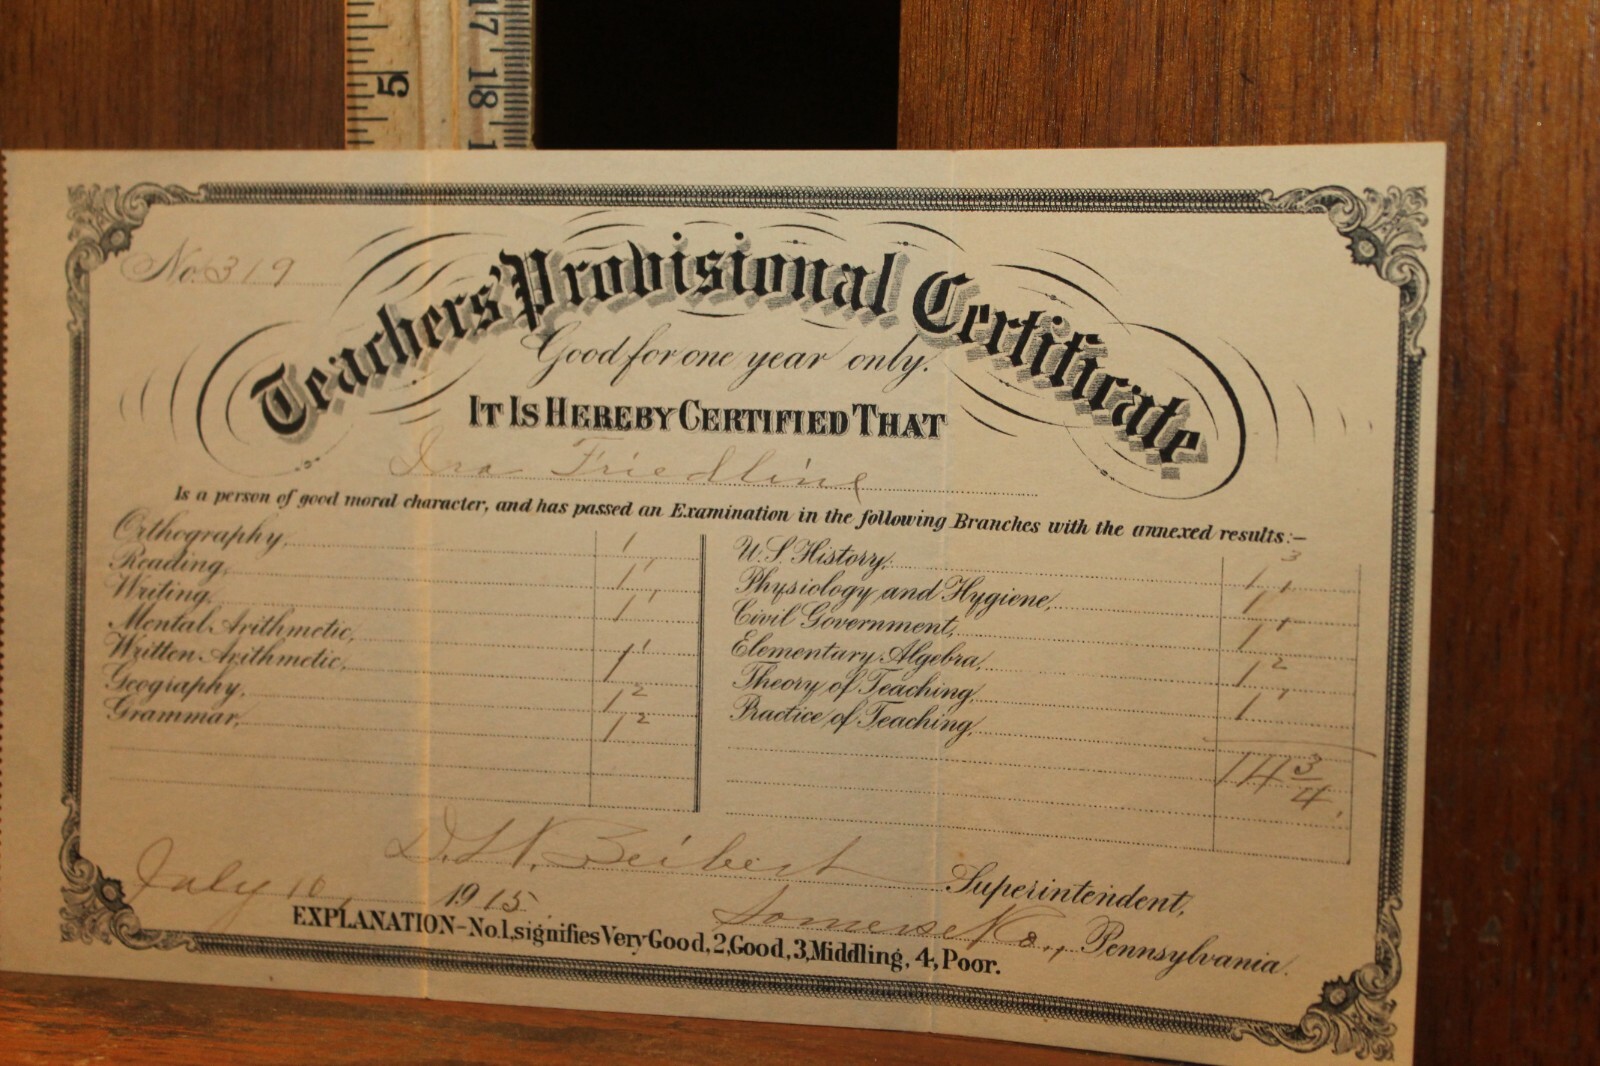 5
17 18 1
No. 319
Teachers' Provisional Certificate
Good for one year only.
IT IS HEREBY CERTIFIED THAT
Ira Friedline
Is a person of good moral character, and has passed an Examination in the following Branches with the annexed results:—
Orthography, 1
Reading, 1 1
Writing, 1 1
Mental Arithmetic,
Written Arithmetic, 1 1
Geography, 1 2
Grammar, 1 2
U.S. History, 1 3
Physiology and Hygiene, 1 1
Civil Government, 1 1
Elementary Algebra, 1 2
Theory of Teaching, 1 1
Practice of Teaching,
14 3/4
D. W. Seibert Superintendent,
July 10, 1915.
Somerset Co., Pennsylvania.
EXPLANATION–No. 1, signifies Very Good, 2, Good, 3, Middling, 4, Poor.